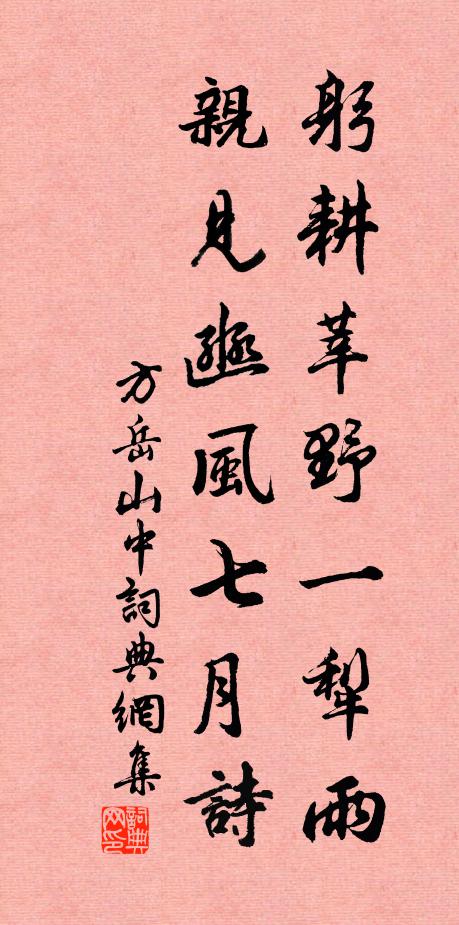 躬耕莘野一犁雨
親見豳風七月詩
方岳山中詞典網集
詞典网印